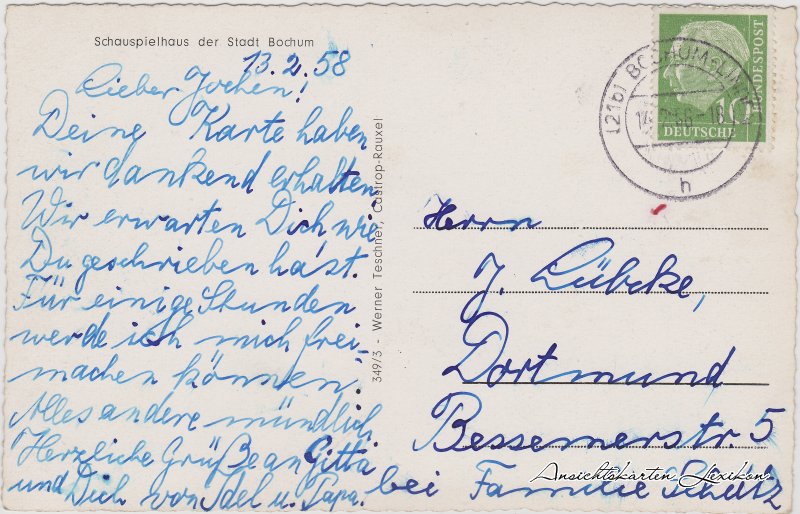 Schauspielhaus der Stadt Bochum
13.2.58
Lieber Jochen!
Deine Karte haben
wir dankend erhalten.
Wir erwarten Dich wie
Du geschrieben hast.
Für einige Stunden
werde ich mich frei-
machen können.
Alles andere mündlich
Herzliche Grüße an Gitta
und Dich von Idel u. Papa.
349/3 - Werner Teschner, Castrop-Rauxel
(21b) BOCHUM
h
10
DEUTSCHE
BUNDESPOST
Herrn
J. Lübcke,
Dortmund
Bessemerstr. 5
bei Familie Schulz
Ansichtskarten-Lexikon